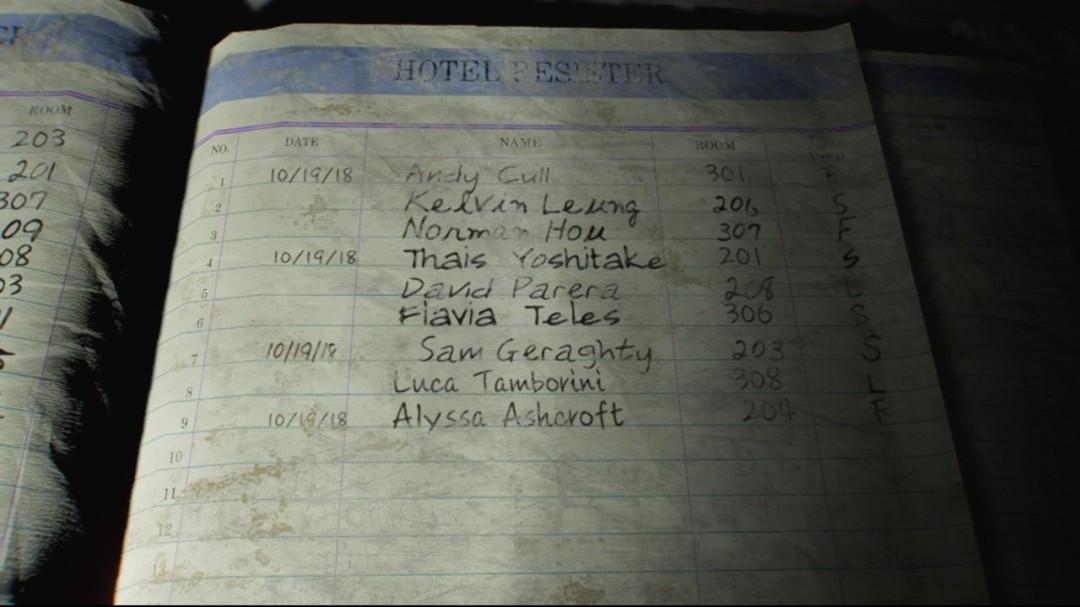 ROOM
203
201
307
09
08
03
HOTEL RESISTER
NO. DATE NAME ROOM
1 10/19/18 Andy Cull 301 F
2 Kelvin Leung 206 S
3 Norman Hou 307 F
4 10/19/18 Thais Yoshitake 201 S
5 David Parera 208 L
6 Flavia Teles 306 S
7 10/19/18 Sam Geraghty 203 S
8 Luca Tamborini 308 L
9 10/19/18 Alyssa Ashcroft 204 F
10
11
12
13